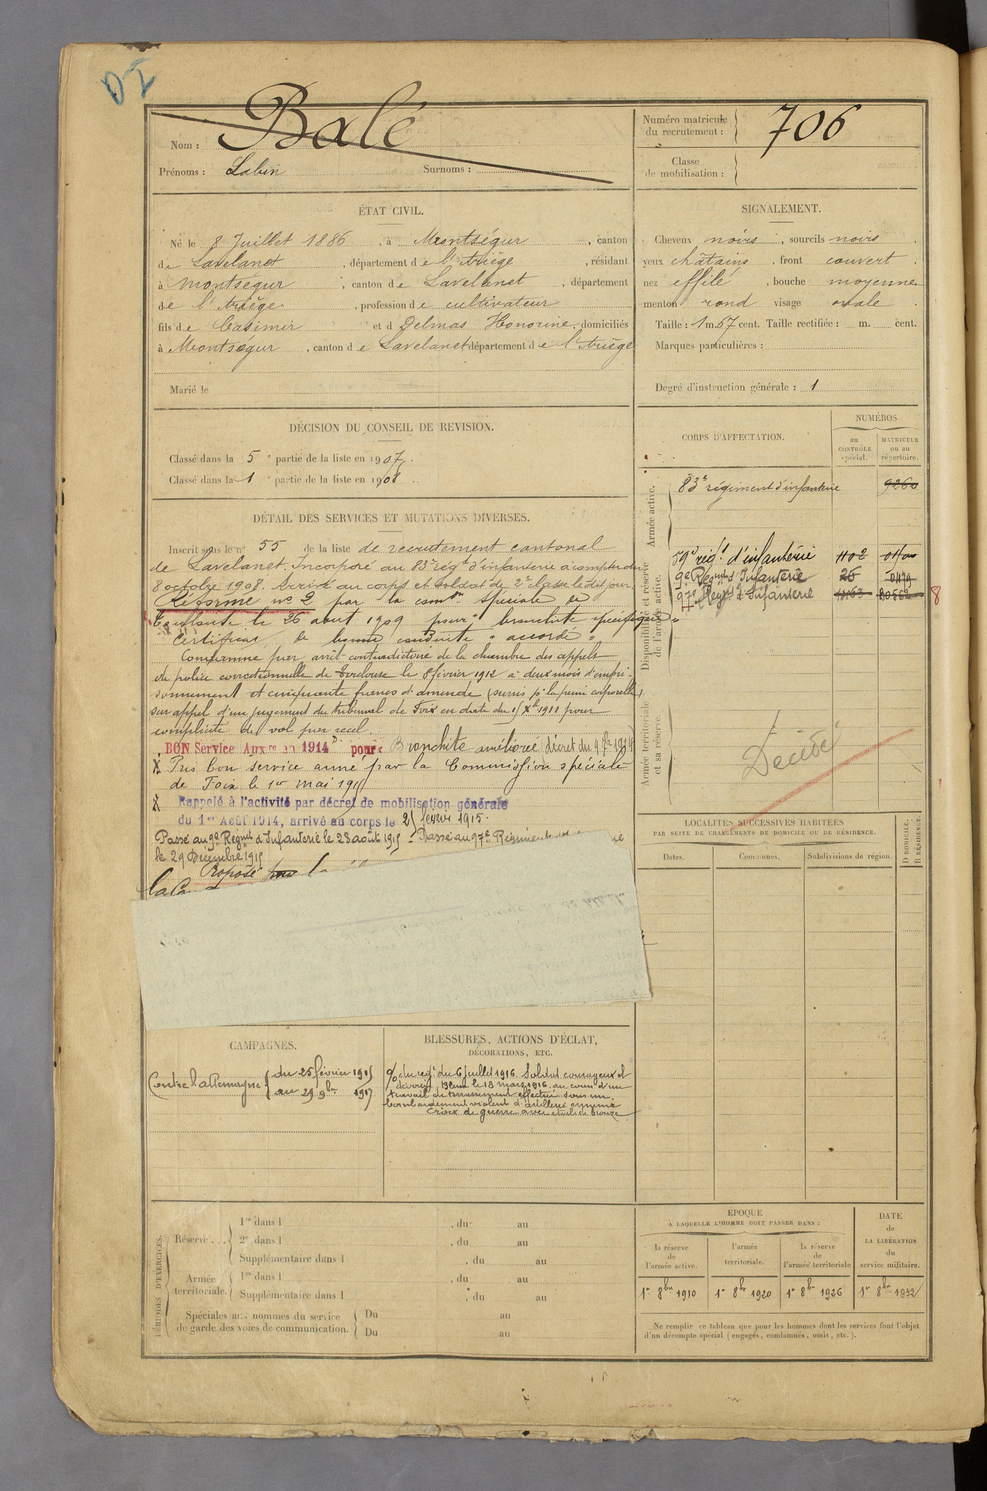 Balé
Nom :
Prénoms : Sabin Surnoms :
Numéro matricule
du recrutement :
706
Classe
de mobilisation :
ÉTAT CIVIL.
Né le 8 Juillet 1886, à Montségur, canton
de Lavelanet, département de l'Ariège, résidant
à Montségur, canton de Lavelanet, département
de l'Ariège, profession de cultivateur
fils de Casimir et d Delmas Honorine, domiciliés
à Montségur, canton de Lavelanet département de l'Ariège
Marié le
SIGNALEMENT.
Cheveux noirs, sourcils noirs.
yeux châtains, front couvert
nez effilé, bouche moyenne
menton rond visage ovale
Taille : 1 m. 67 cent. Taille rectifiée : m. cent.
Marques particulières :
Degré d'instruction générale : 1
DÉCISION DU CONSEIL DE REVISION.
Classé dans la 5e partie de la liste en 1907.
Classé dans la 1e partie de la liste en 1908.
DÉTAIL DES SERVICES ET MUTATIONS DIVERSES.
Inscrit sous le n° 55 de la liste de recrutement cantonal
de Lavelanet. Incorporé au 83e régt d'infanterie à compter du
8 octobre 1908. Arrivé au corps et soldat de 2e classe le dit jour.
Réformé no 2 par la comon spéciale de
Toulouse le 26 août 1909 pour bronchite spécifique
Certificat de bonne conduite "accordé"
Condamné par arrêt contradictoire de la chambre des appels
de police correctionnelle de Toulouse le 8 février 1912 à deux mois d'empri-
sonnement et cinquante francs d'amende (sursis pr la peine corporelle)
sur appel d'un jugement du tribunal de Foix en date du 15 Xbre 1911 pour
complicité de vol par recel.
BON Service Auxre en 1914 pour Bronchite améliorée (décret du 9 7bre 1914
X Pris bon service armé par la Commission spéciale
de Foix le 1er mai 1915
X Rappelé à l'activité par décret de mobilisation générale
du 1er Août 1914, arrivé au corps le 25 février 1915.
Passé au 9e Régmt d'Infanterie le 23 août 1915 - Passé au 97e Régiment
le 29 Décembre 1915
Proposé pour
CORPS D'AFFECTATION.
NUMÉROS
au
CONTRÔLE
spécial.
MATRICULE
ou au
répertoire.
Armée active.
83e régiment d'infanterie 9260
Disponibilité et réserve
de l'armée active.
59e régt d'infanterie 1102
9e Régmt d'Infanterie 26
97e Régt d'Infanterie
8
Armée territoriale
et sa réserve.
Décédé
LOCALITÉS SUCCESSIVES HABITÉES
PAR SUITE DE CHANGEMENTS DE DOMICILE OU DE RÉSIDENCE.
Dates.
Communes.
Subdivisions de région.
D DOMICILE.
R RÉSIDENCE.
CAMPAGNES.
Contre l'allemagne du 25 février 1915
au 29 9bre 1917
BLESSURES, ACTIONS D'ÉCLAT,
DÉCORATIONS, ETC.
% du régt du 6 juillet 1916. Soldat courageux et
dévoué. Blessé le 18 mars 1916 au cours d'un
travail de terrassement effectué sous un
bombardement violent d'artillerie ennemie
Croix de guerre avec étoile de bronze
PÉRIODES D'EXERCICES.
Réserve
1re dans l , du au
2e dans l , du au
Supplémentaire dans l , du au
Armée
territoriale.
1re dans l , du au
Supplémentaire dans l , du au
Spéciales aux hommes du service
de garde des voies de communication.
Du au
Du au
ÉPOQUE
À LAQUELLE L'HOMME DOIT PASSER DANS :
la réserve
de
l'armée active.
l'armée
territoriale.
la réserve
de
l'armée territoriale
DATE
de
LA LIBÉRATION
du
service militaire.
1er 8bre 1910
1er 8bre 1920
1er 8bre 1926
1er 8bre 1932
Ne remplir ce tableau que pour les hommes dont les services font l'objet
d'un décompte spécial (engagés, condamnés, omis, etc.).